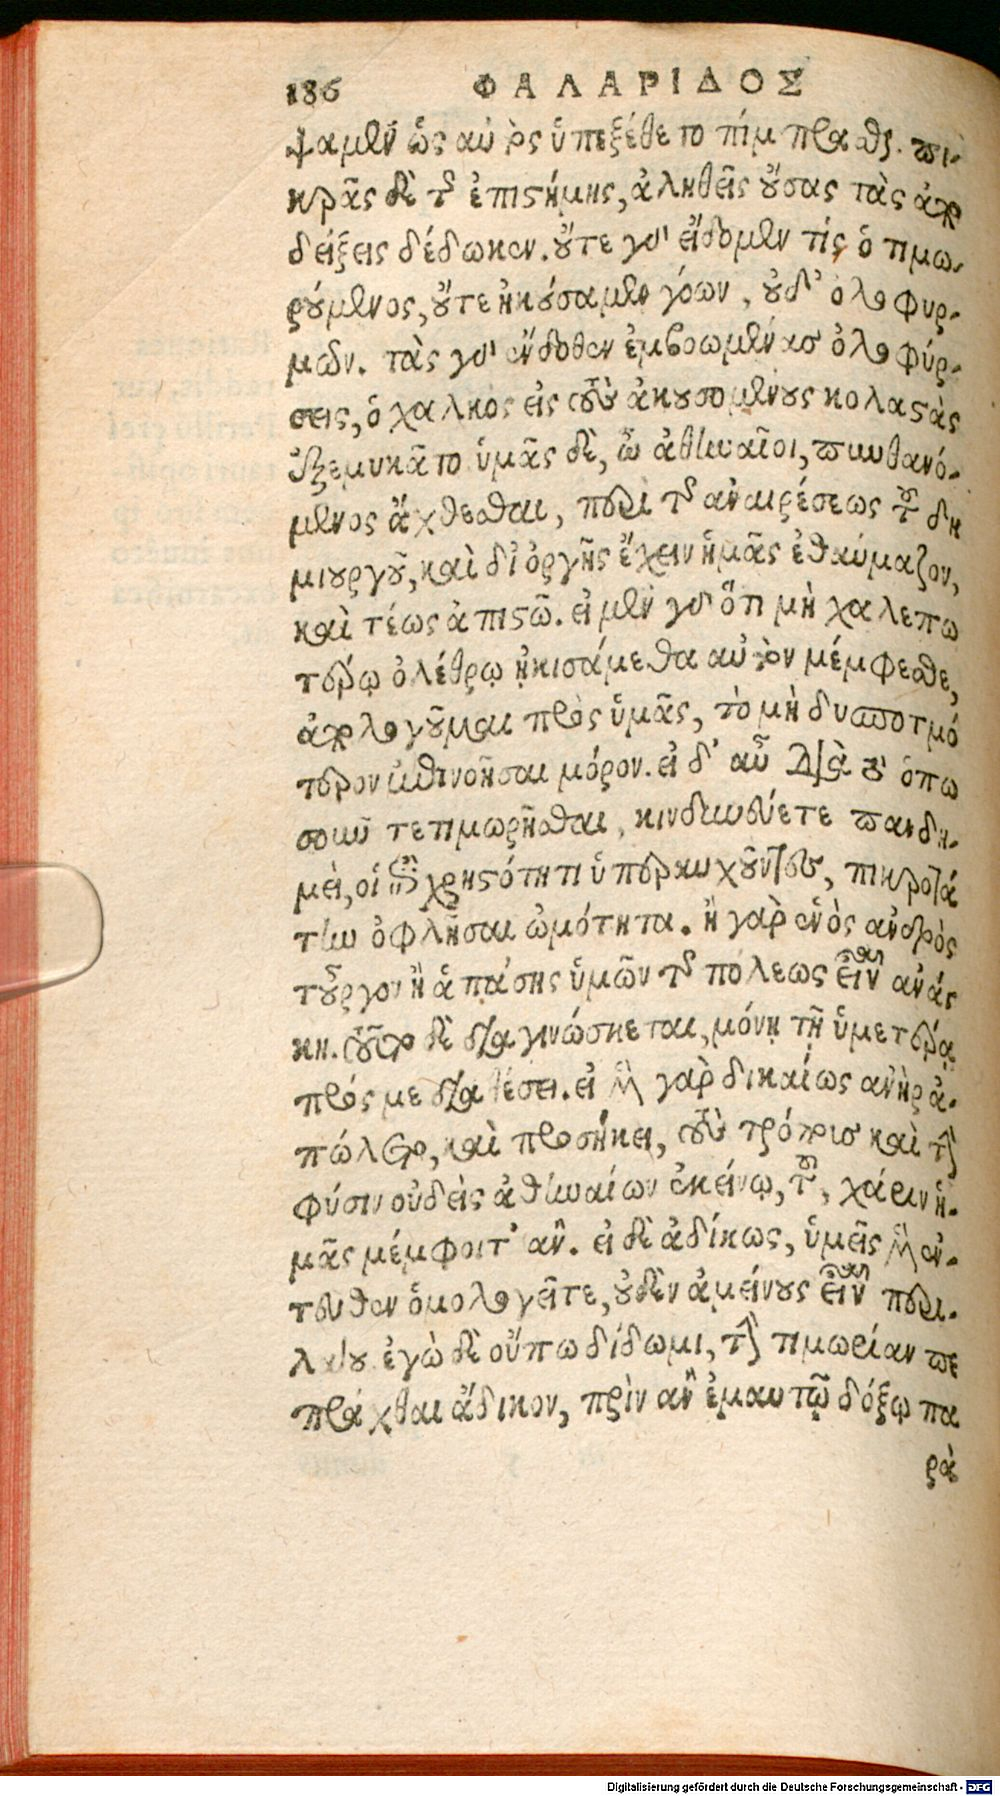 186 ΦΑΛΑΡΙΔΟΣ
ψαμεν ὡς αὐτὸς ὑπεξέθετο πίμπρασθαι. πι-
κρᾶς δὲ τῆς ἐπιστήμης, ἀληθεῖς οὔσας τὰς ἀπο
δείξεις δέδωκεν. οὔτε γὰρ εἴδομεν τίς ὁ τιμω-
ρούμενος, οὔτε ἠκούσαμεν γόων, οὐδ' ὀλοφυρ-
μῶν. τὰς γὰρ ἔνδοθεν ἐμβοωμένας ὀλοφύρ-
σεις, ὁ χαλκὸς εἰς τοὺς ἀκουσομένους κολαστὰς
ἐξεμυκᾶτο ὑμᾶς δὲ, ὦ ἀθηναῖοι, πυνθανό-
μενος ἄχθεσθαι, περὶ τῆς ἀναιρέσεως τοῦ δη
μιουργοῦ, καὶ δι' ὀργῆς ἔχειν ἡμᾶς ἐθαύμαζον,
καὶ τέως ἀπιστῶ. εἰ μὲν γὰρ ὅτι μὴ χαλεπω
τέρῳ ὀλέθρῳ ᾐκισάμεθα αὐτὸν μέμφεσθε,
ἀπολογοῦμαι πρὸς ὑμᾶς, τὸ μὴ δυσποτμό
τερον ἐπινοῆσαι μόρον. εἰ δ' αὖ διὰ τὸ ὁπω
σοῦν τετιμωρῆσθαι, κινδυνεύετε πανδη-
μεὶ, οἱ ἐπὶ χρηστότητι ὑπεραυχοῦντες, πικροτά
την ὀφλῆσαι ὠμότητα. ἢ γὰρ ἑνὸς ἀνδρὸς
τοὖργον ἢ ἁπάσης ὑμῶν τῆς πόλεως εἶναι ἀνάγ
κη. τοῦτο δὲ διαγινώσκεται, μόνῃ τῇ ὑμετέρᾳ
πρός με διαθέσει. εἰ μὲν γὰρ δικαίως ἀνὴρ ἀ-
πώλετο, καὶ προσήκει, τοὺς τρόποις καὶ τὴν
φύσιν οὐδεὶς ἀθηναίων ἐκείνῳ, τούτου, χάριν ἡ-
μᾶς μέμφοιτ' ἄν. εἰ δὲ ἀδίκως, ὑμεῖς μὲν ἐν-
τεῦθεν ὁμολογεῖτε, οὐδὲν ἀμείνους εἶναι περι-
λάου ἐγὼ δὲ οὔπω δίδωμι, τὴν τιμωρίαν πε
πρᾶχθαι ἄδικον, πρὶν ἂν ἐμαυτῷ δόξῳ πα
ρὰ
Digitalisierung gefördert durch die Deutsche Forschungsgemeinschaft - DFG